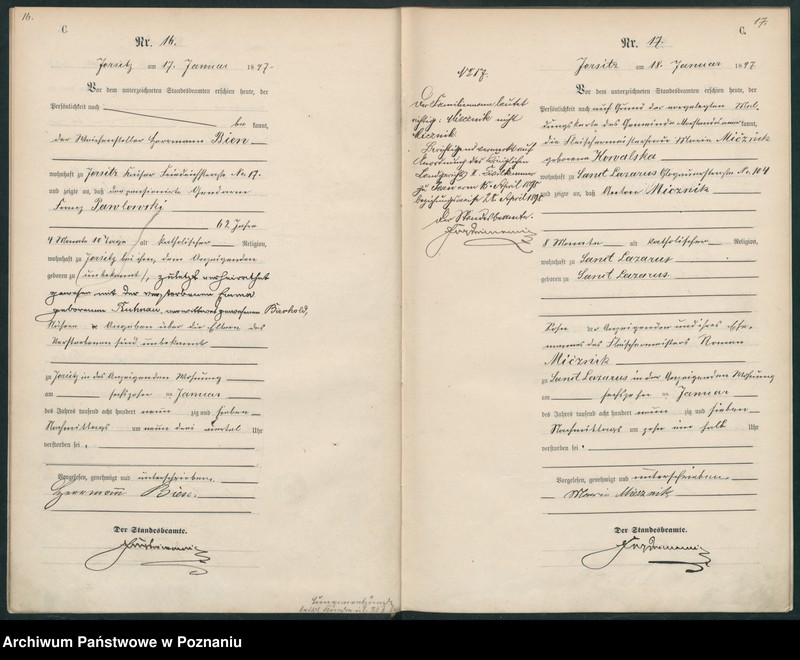 16.
C.
Nr. 16.
Jersitz am 17. Januar 1897.
Vor dem unterzeichneten Standesbeamten erschien heute, der
Persönlichkeit nach
bekannt,
der Weichensteller Herrmann Biese
wohnhaft zu Jersitz Kaiser Friedrichstrasse No. 17.
und zeigte an, daß der pensionierte Gendarm
Franz Pawlowski
62 Jahre
4 Monate 10 Tage alt katholischer Religion,
wohnhaft zu Jersitz bei ihm, dem Anzeigenden
geboren zu (unbekannt), zuletzt verheirathet
gewesen mit der verstorbenen Emma
geborenen verwittwet gewesenen
Angaben über die Eltern des
Verstorbenen sind unbekannt
zu Jersitz in des Anzeigenden Wohnung
am sechszehnten Januar
des Jahres tausend acht hundert neunzig und sieben
Nachmittags um neun drei viertel Uhr
verstorben sei.
Vorgelesen, genehmigt und unterschrieben.
Herrmann Biese.
Der Standesbeamte.
17.
C.
Nr. 17.
Jersitz am 18. Januar 1897
Vor dem unterzeichneten Standesbeamten erschien heute, der
Persönlichkeit nach auf Grund der vorgelegten Mel-
dungskarte des Gemeinde Vorstandes anerkannt,
die Fleischermeisterfrau Maria Micznik
geborene Kowalska
wohnhaft zu Sanct Lazarus Glogauerstrasse No. 104
und zeigte an, daß Anton Micznik
8 Monate alt katholischer Religion,
wohnhaft zu Sanct Lazarus
geboren zu Sanct Lazarus
Sohn der Anzeigenden und ihres Ehe-
mannes des Fleischermeisters Roman
Micznik
zu Sanct Lazarus in der Anzeigenden Wohnung
am sechszehnten Januar
des Jahres tausend acht hundert neunzig und sieben
Nachmittags um zehn ein halb Uhr
verstorben sei.
Vorgelesen, genehmigt und unterschrieben.
Maria Miecznik
Der Standesbeamte.
No 17.
Der Familienname lautet
richtig: Miecznik nicht
Micznik.
Berichtigend vermerkt auf
Anordnung des Königlichen
Landgerichts
zu Posen vom 15. April 1898
beziehungsweise 28. April 1898
Der Standesbeamte.
Archiwum Państwowe w Poznaniu